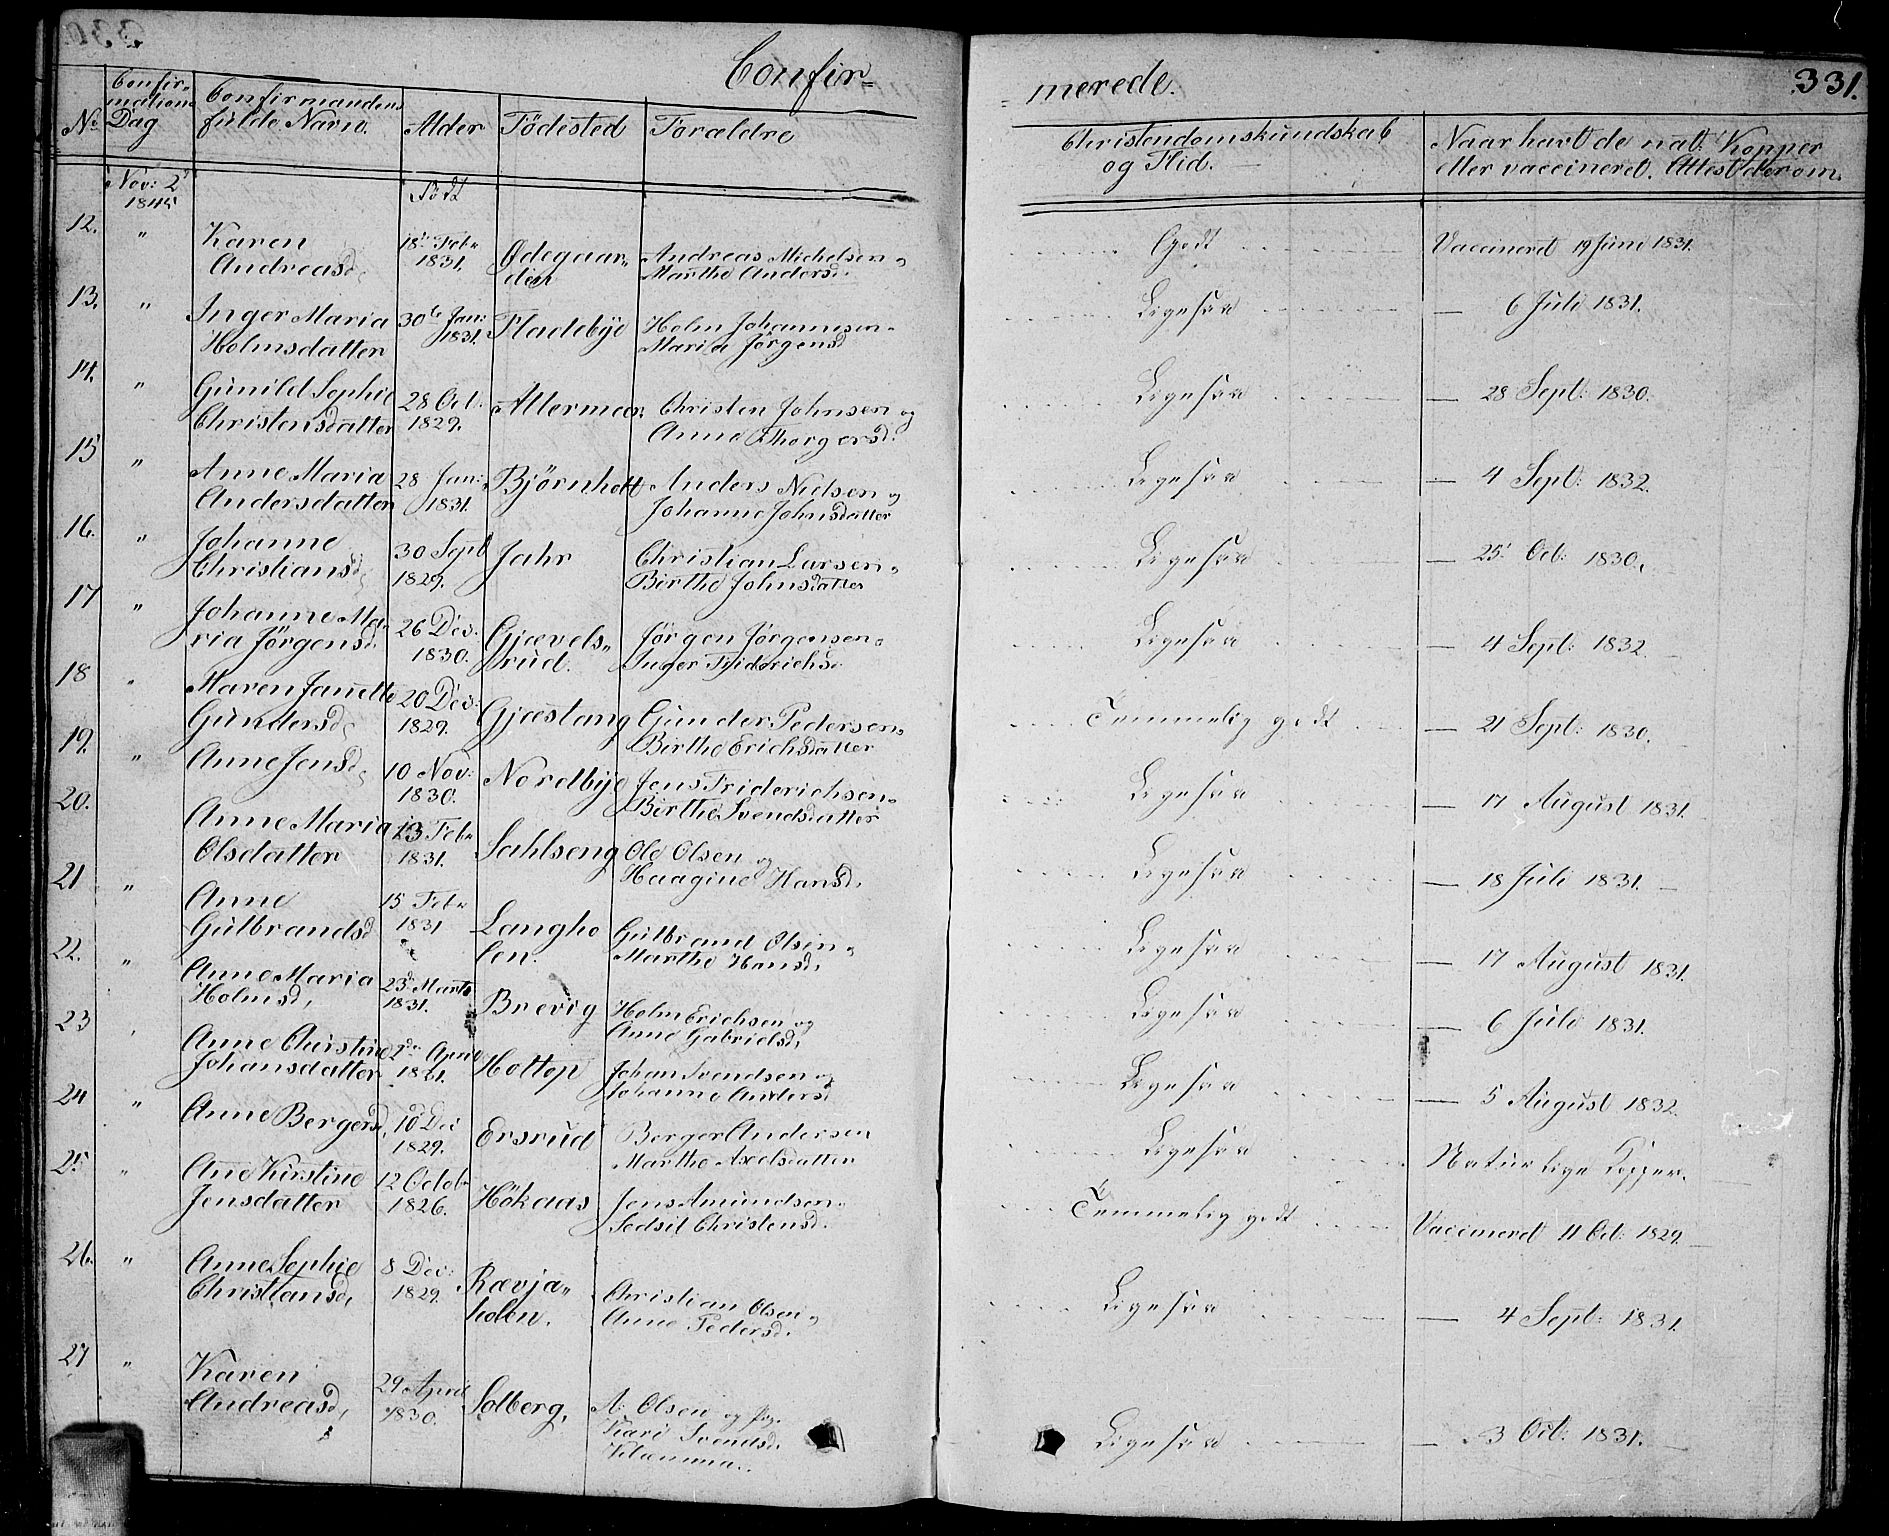 Confir=
= merede.
331.
No
Confir=
mations
Dag
Confirmandens
fulde Navn.
Alder
Födested
Forældre
Christendomskundskab
og Flid.
Naar havt de nat: Kopper
eller vaccineret. Attest derom.
Nov: 2
1845
Födt
12. " Karen 18de Febr Ødegaar= Andreas Michelsen " Godt Vaccineret 19 Juni 1831.
Andreasd, 1831. den Marthe Andersd.
13. " Inger Maria 30te Jan: Fladebÿe Holm Johannesen " Ligesaa — 6 Juli 1831.
Holmsdatter 1831. Maria Jörgensd
14. " Gunild Sophie 28 Oct. Christen Johnsen og Ligesaa — 28 Sept: 1830.
Christensdatter 1829. Anne Thorgersd.
15 " Anne Maria 28 Jan: Björnholt Anders Nielsen og Ligesaa — 4 Sept: 1832.
Andersdatter 1831. Johanne Johnsdatter
16. " Johanne 30 Sept Jahr Christian Larsen " Ligesaa — 25 Oct: 1830.
Christiansd, 1829. Birthe Johnsdatter
17 " Johanne Ma= 26 Dec. Gjævels= Jørgen Jørgensen " Ligesaa — 4 Sept: 1832
ria Jørgensd. 1830. rud. Inger Friderichsd.
18 " Maren Janette 20 Dec: Gjæstang Gunder Pedersen " Temmelig godt — 21 Sept: 1830.
Gundersd, 1829. Birthe Erichsdatter
19. " Anne Jensd, 10 Nov: Nordbÿe Jens Friderichsen " Ligesaa — 17 August 1831.
1830. Birthe Svendsdatter
20. Anne Maria 13 Febr Sahlseng Ole Olsen og Ligesaa — 18 Juli 1831.
Olsdatter 1831. Haagine Hansd.
21 " Anne 15 Febr Langho Gulbrand Olsen " Ligesaa — 17 August 1831.
Gulbrandsd 1831 len. Marthe Hansd.
22. " Anne Maria 23d Marts Brevig Holm Erichsen og Ligesaa — 6 Juli 1831.
Holmsd, 1831. Anne Gabrielsd.
23 Anne Christine 2den April Holtop Johan Svendsen og Ligesaa — 5 August 1832.
Johansdatter Johanne Andersd
24 " Anne Bergersd, 10 Dec Ersrud Berger Andersen Ligesaa Naturlige Kopper.
1829. Marthe Axelsdatter
25. " Ane Kirstine 12 Octobr Hökaas Jens Amundsen " Temmelig godt Vaccineret 11 Oct: 1829.
Jensdatter 1826. Sedsil Christensd.
26. " Anne Sophie 8 Dec: Rævja= Christian Olsen " Ligesaa — 4 Sept: 1831.
Christiansd, 1829. holen. Anne Pedersd.
27 " Karen 29 April Solberg, A. Olsen og Pige Ligesaa — 3 Oct: 1831.
Andreasd, 1830. Kari Svendsd.